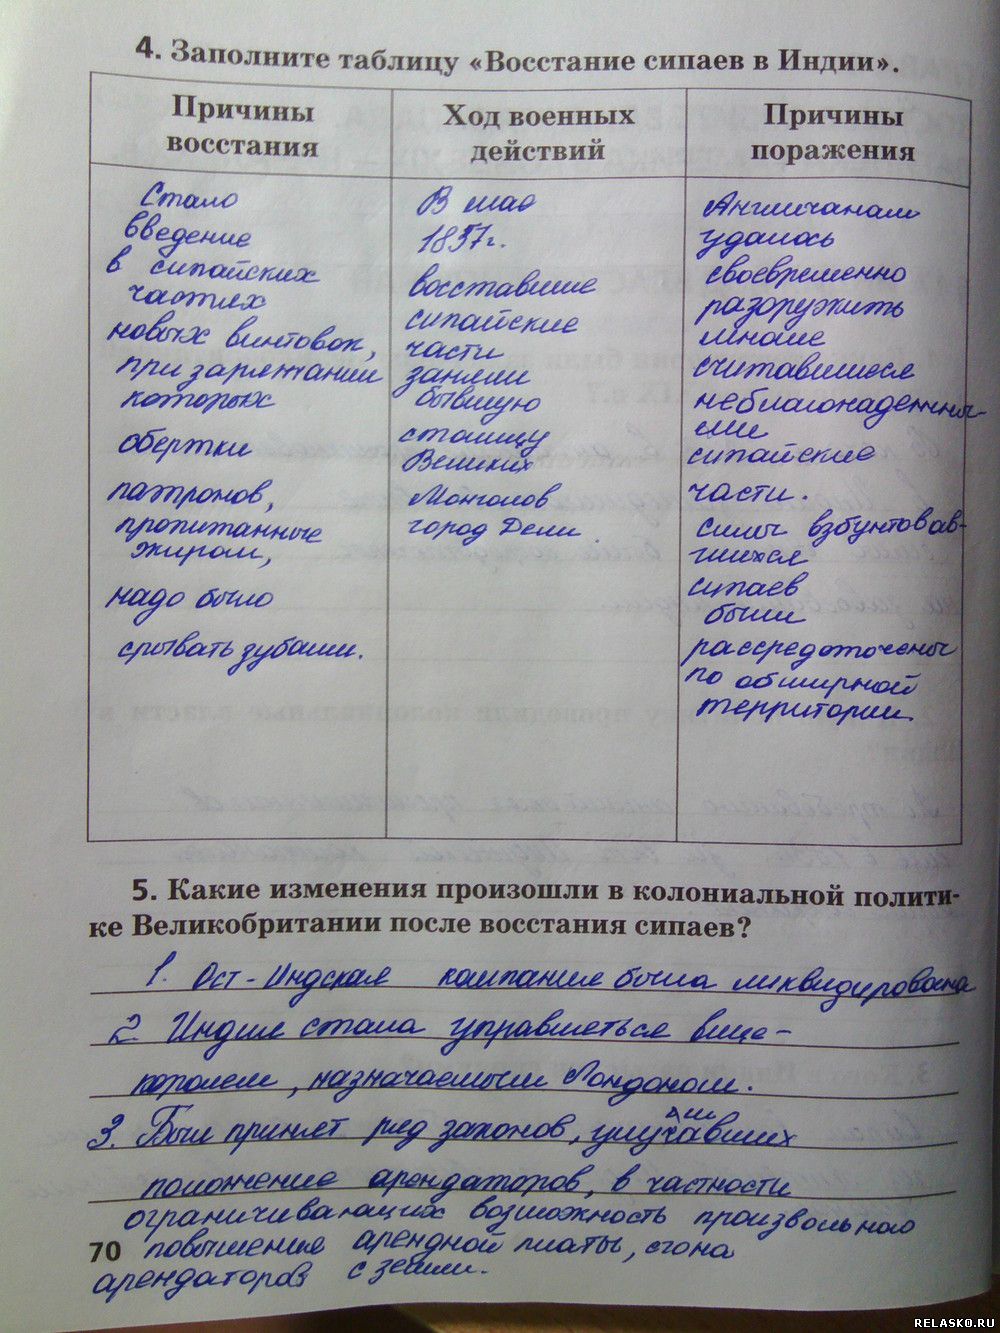 4. Заполните таблицу «Восстание сипаев в Индии».
Причины
восстания
Ход военных
действий
Причины
поражения
Стало
введение
в сипайских
частях
новых винтовок,
при заряжании
которых
обертки
патронов,
пропитанные
жиром,
надо было
срывать зубами.
В мае
1857г.
восставшие
сипайские
части
заняли
бывшую
столицу
Великих
Монголов
город Дели.
Англичанам
удалось
своевременно
разоружить
многие
считавшиеся
неблагонадежны-
ми
сипайские
части.
силы взбунтовав-
шихся
сипаев
были
рассредоточены
по обширной
территории.
5. Какие изменения произошли в колониальной полити-
ке Великобритании после восстания сипаев?
1. Ост-Индская компания была ликвидирована
2. Индия стала управляться вице-
королем, назначаемым Лондоном.
3. Был принят ряд законов, улучшавших
положение арендаторов, в частности
ограничивающих возможность произвольного
70 повышения арендной платы, сгона
арендаторов с земли.
RELASKO.RU